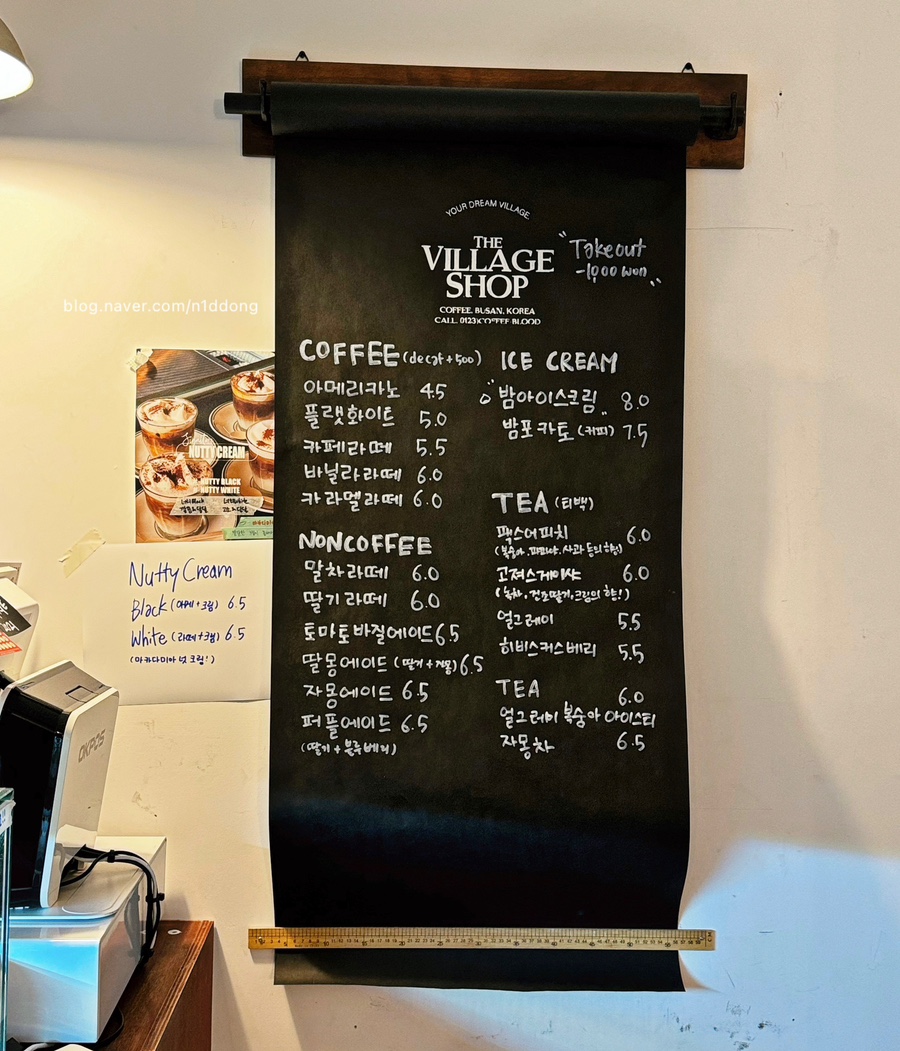 YOUR DREAM VILLAGE.
THE
VILLAGE
SHOP
COFFEE. BUSAN. KOREA
CALL. 0123)COFFEE-BLOOD
"Takeout
-1,000 won"
COFFEE (decaf+500)
아메리카노 4.5
플랫화이트 5.0
카페라떼 5.5
바닐라라떼 6.0
카라멜라떼 6.0
NONCOFFEE
말차라떼 6.0
딸기라떼 6.0
토마토바질에이드 6.5
딸몽에이드 (딸기+자몽) 6.5
자몽에이드 6.5
퍼플에이드 6.5
(딸기+블루베리)
ICE CREAM
밤아이스크림 8.0
밤포카토 (커피) 7.5
TEA (티백)
팩스어피치 6.0
(복숭아, 파파야, 사과 등의 향)
고져스게이샤 6.0
(녹차, 건조딸기, 크림의 향!)
얼그레이 5.5
히비스커스베리 5.5
TEA
얼그레이 복숭아 아이스티 6.0
자몽차 6.5
blog.naver.com/n1ddong
NUTTY CREAM
NUTTY BLACK
NUTTY WHITE
Nutty Cream
Black (아메+크림) 6.5
White (라떼+크림) 6.5
(마카다미아 넛 크림!)
OKPOS